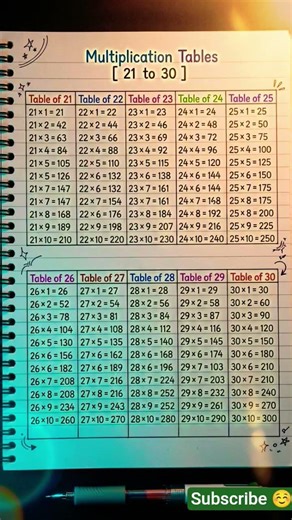 Multiplication Tables
[ 21 to 30 ]
Table of 21 Table of 22 Table of 23 Table of 24 Table of 25
21×1=21 22×1=22 23×1=23 24×1=24 25×1=25
21×2=42 22×2=44 23×2=46 24×2=48 25×2=50
21×3=63 22×3=66 23×3=69 24×3=72 25×3=75
21×4=84 22×4=88 23×4=92 24×4=96 25×4=100
21×5=105 22×5=110 23×5=115 24×5=120 25×5=125
21×5=126 22×6=132 23×6=138 24×6=144 25×6=150
21×7=147 22×6=132 23×7=161 24×6=144 25×7=175
21×7=147 22×7=154 23×7=161 24×7=168 25×8=175
21×8=168 22×6=176 23×8=184 24×8=192 25×8=200
21×9=189 22×9=198 23×9=207 24×9=216 25×9=225
21×10=210 22×10=220 23×10=230 24×10=240 25×10=250
Table of 26 Table of 27 Table of 28 Table of 29 Table of 30
26×1=26 27×1=27 28×1=28 29×1=29 30×1=30
26×2=52 27×2=54 28×2=56 29×2=58 30×2=60
26×3=78 27×3=81 28×3=84 29×3=87 30×3=90
26×4=104 27×4=108 28×4=112 29×4=116 30×4=120
26×5=130 27×5=135 28×5=140 29×5=145 30×5=150
26×6=156 27×6=162 28×6=168 29×6=174 30×6=180
26×6=182 27×6=189 28×6=196 29×7=103 30×6=210
26×7=208 27×7=216 28×7=224 29×7=203 30×7=210
26×8=208 27×8=216 28×8=252 29×8=232 30×8=240
26×9=234 27×9=243 28×9=252 29×9=261 30×9=270
26×10=260 27×10=270 28×10=280 29×10=290 30×10=300
Subscribe ☺️